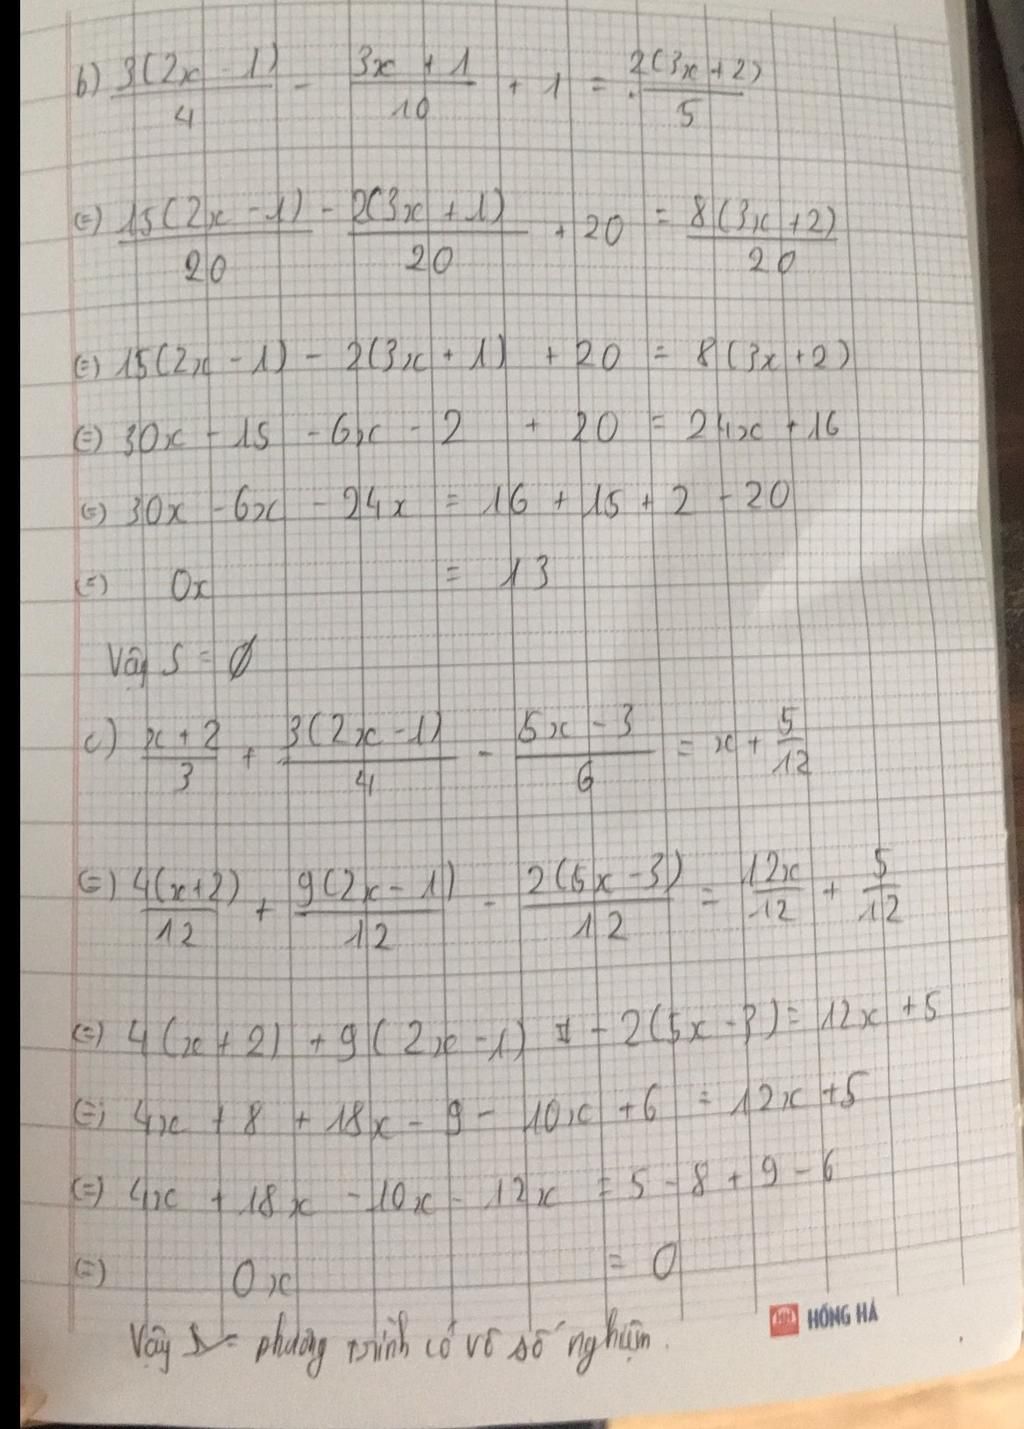 b) 3(2x - 1)/4 - 3x + 1/10 + 1 = 2(3x + 2)/5
(=) 15(2x - 1)/20 - 2(3x + 1)/20 + 20 = 8(3x + 2)/20
(=) 15(2x - 1) - 2(3x + 1) + 20 = 8(3x + 2)
(=) 30x - 15 - 6x - 2 + 20 = 24x + 16
(=) 30x - 6x - 24x = 16 + 15 + 2 - 20
(=) 0x = 13
Vây S = ∅
c) x + 2/3 + 3(2x - 1)/4 - 5x - 3/6 = x + 5/12
(=) 4(x+2)/12 + 9(2x - 1)/12 - 2(5x - 3)/12 = 12x/12 + 5/12
(=) 4(x + 2) + 9(2x - 1) - 2(5x - 3) = 12x + 5
(=) 4x + 8 + 18x - 9 - 10x + 6 = 12x + 5
(=) 4x + 18x - 10x - 12x = 5 - 8 + 9 - 6
(=) 0x = 0
HỒNG HÀ
Vậy phương trình có vô số nghiệm.